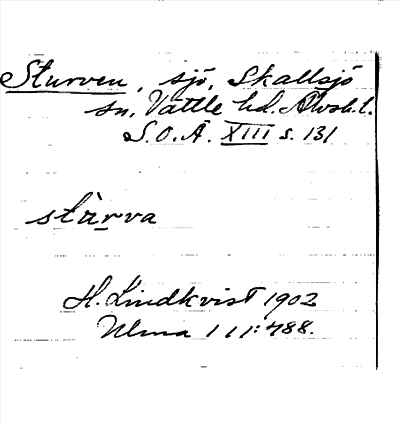 Sturven, sjö, Skallsjö
sn, Vättle hd. Älvsb. l.
S.O.Ä. XIII s. 131
stùrva
H. Lindkvist 1902
Ulma 111:488.